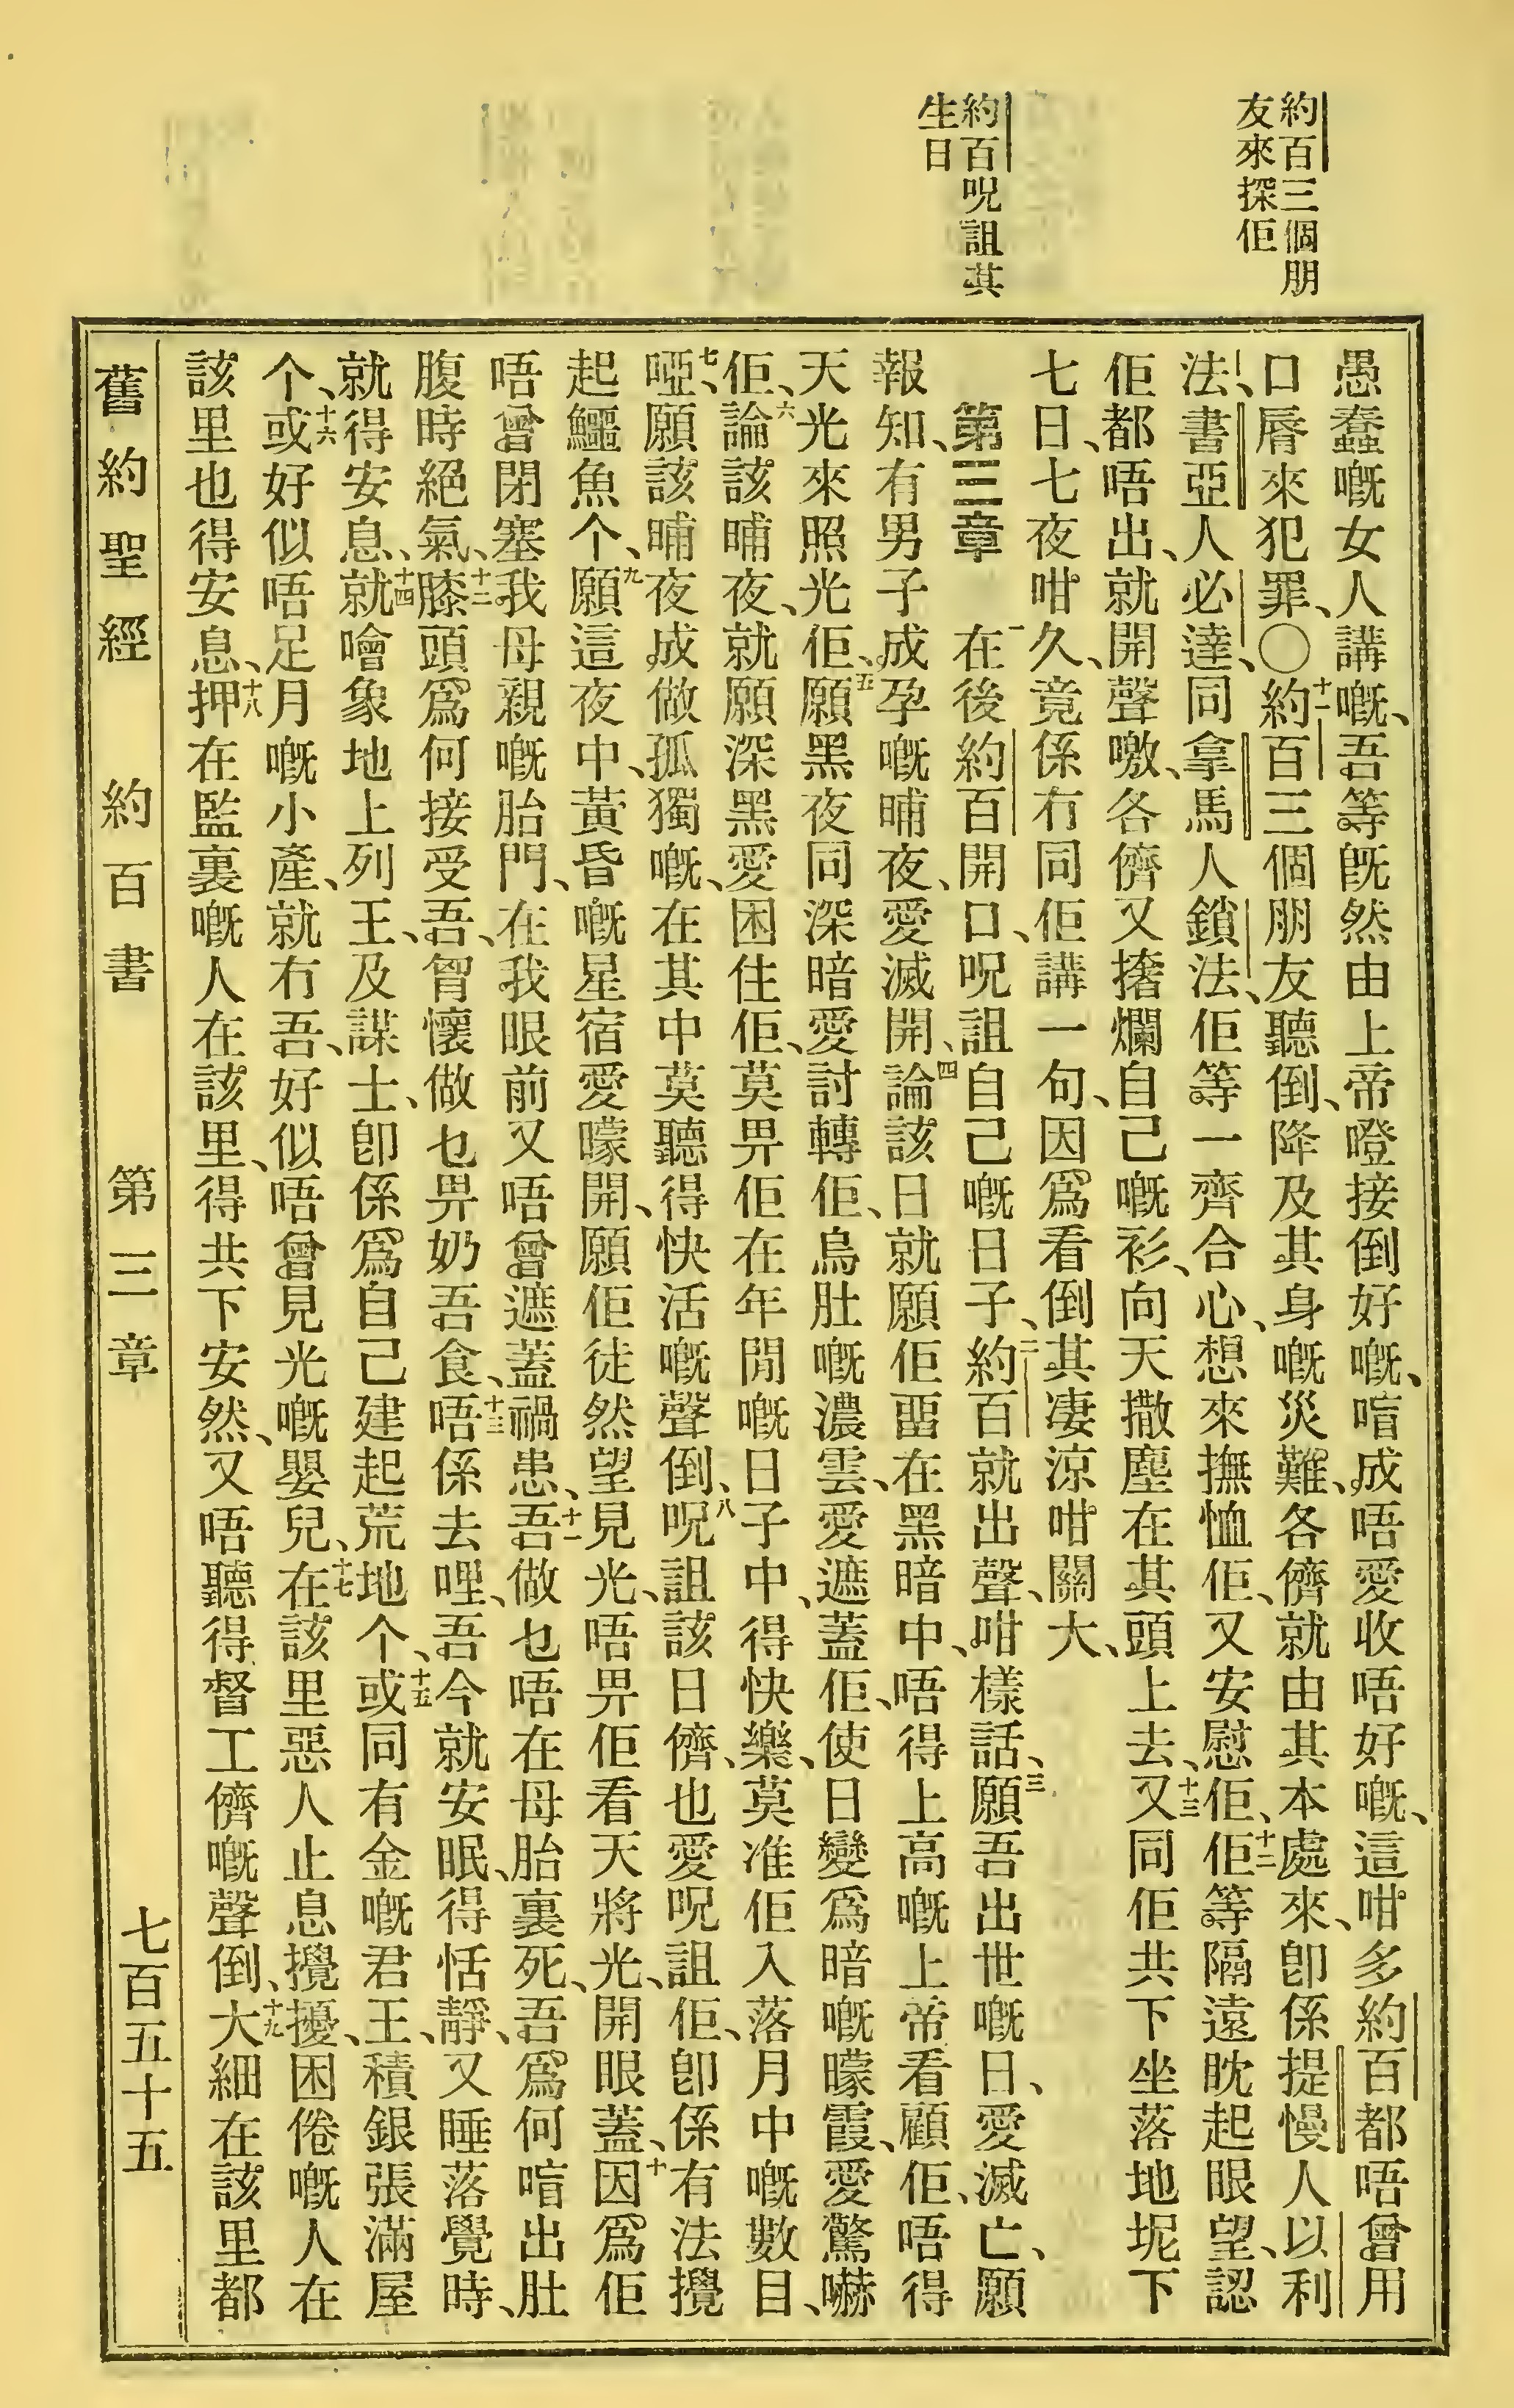 約百三個朋
友來探佢
約百呪詛其
生日
愚蠢嘅女人講嘅、吾等旣然由上帝𠹌接倒好嘅、唷成唔愛收唔好嘅、這咁多約百都唔曾用
口脣來犯罪、〇十一約百三個朋友聽倒、降及其身嘅災難、各儕就由其本處來、卽係提慢人以利
法、書亞人必達、同拿馬人鎖法、佢等一齊合心、想來撫恤佢、又安慰佢、十二佢等隔遠眈起眼望、認
佢都唔出、就開聲噭、各儕又撦爛自己嘅衫、向天撒塵在其頭上去、十三又同佢共下坐落地坭下
七日、七夜咁久、竟係冇同佢講一句、因爲看倒其凄涼咁關大、
第三章 一在後約百開口、呪詛自己嘅日子、二約百就出聲、咁樣話、三願吾出世嘅日、愛滅亡、願
報知、有男子成孕嘅晡夜、愛滅開、四論該日就願佢畱在黑暗中、唔得上高嘅上帝看顧佢、唔得
天光來照光佢、五願黑夜同深暗愛討轉佢、烏肚嘅濃雲、愛遮蓋佢、使日變爲暗嘅曚霞、愛驚嚇
佢、六論該晡夜、就願深黑愛困住佢、莫畀佢在年間嘅日子中、得快樂、莫准佢入落月中嘅數目、
七啞、願該晡夜成做孤獨嘅、在其中莫聽得快活嘅聲倒、八呪詛該日儕、也愛呪詛佢、卽係有法攪
起鱷魚个、九願這夜中、黃昏嘅星宿愛曚開、願佢徒然望見光、唔畀佢看天將光、開眼蓋、十因爲佢
唔曾閉塞我母親嘅胎門、在我眼前又唔曾遮蓋禍患、十一吾做乜唔在母胎裏死、吾爲何唷出肚
腹時絕氣、十二膝頭爲何接受吾、胷懷做乜畀奶吾食、十三唔係去哩、吾今就安眠、得恬靜、又睡落覺時、
就得安息、十四就噲象地上列王、及謀士、卽係爲自己建起荒地个、十五或同有金嘅君王、積銀張滿屋
个、十六或好似唔足月嘅小產、就冇吾、好似唔曾見光嘅嬰兒、十七在該里惡人止息攪擾、困倦嘅人在
該里也得安息、十八押在監裏嘅人在該里、得共下安然、又唔聽得督工儕嘅聲倒、十九大細在該里都
舊約聖經 約百書 第三章 七百五十五